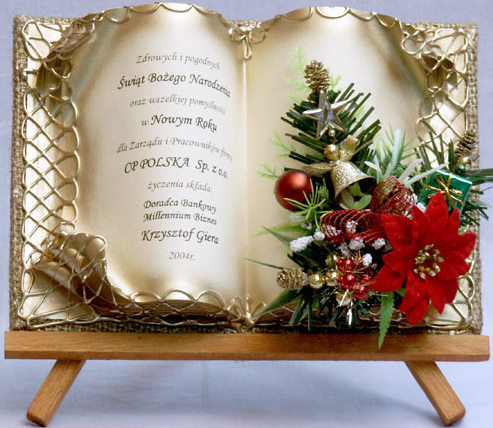 Zdrowych i pogodnych
Świąt Bożego Narodzenia
oraz wszelkiej pomyślności
w Nowym Roku
dla Zarządu i Pracowników firmy
CP POLSKA Sp. z o.o.
życzenia składa:
Doradca Bankowy
Millennium Biznes
Krzysztof Giera
2004r.